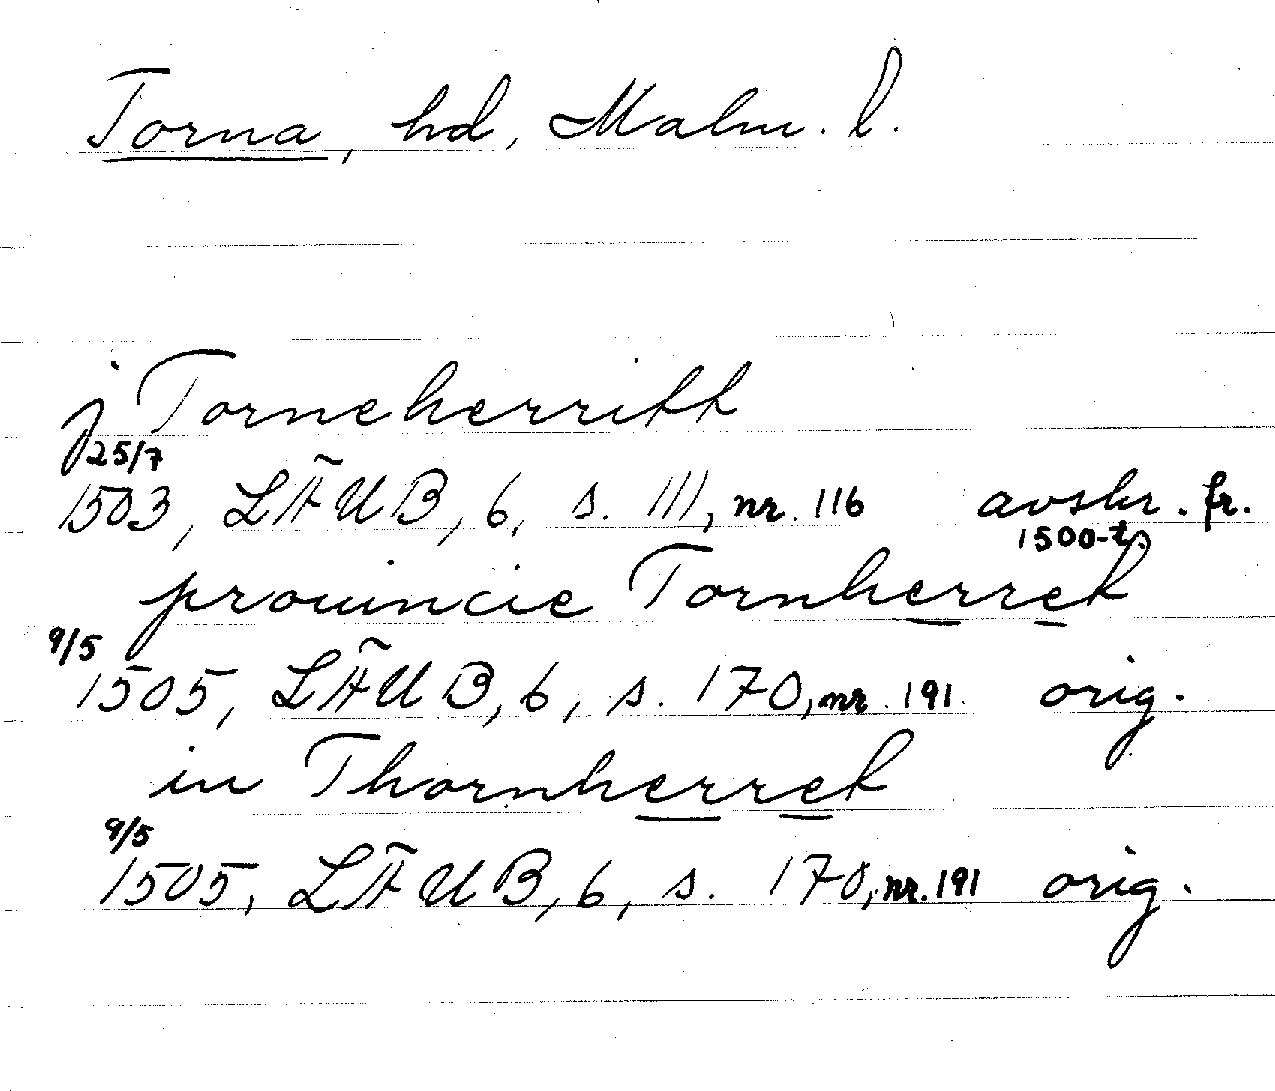 Torna, hd, Malm. l.
j Torneherritt
25/7
1503, LÄUB, 6, s. 111, nr. 116 avskr. fr.
1500-t.
prouincie Tornherret
9/5
1505, LÄUB, 6, s. 170, nr. 191. orig.
in Thornherret
9/5
1505, LÄUB, 6, s. 170, nr. 191 orig.